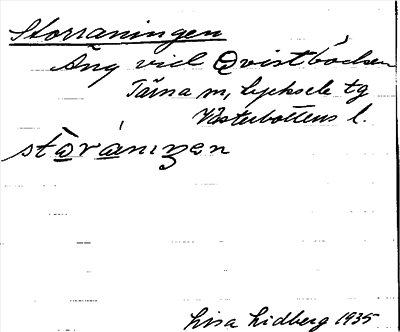 Storraningen
Äng vid Qvistbäcken
Tärna sn, Lycksele tg
Västerbottens l.
storánıŋen
Lisa Lidberg 1935